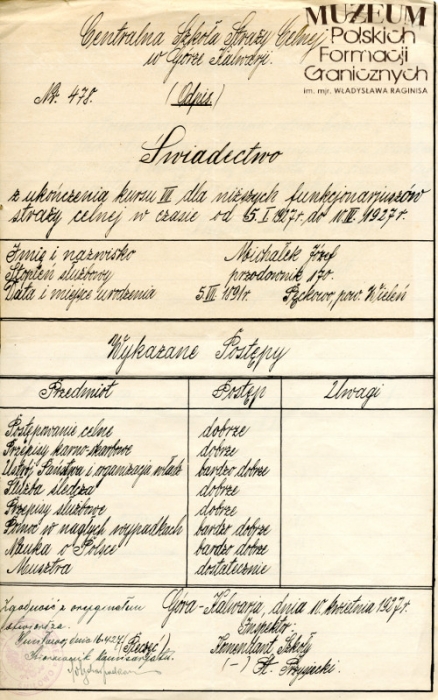 MUZEUM
Polskich
Formacji
Granicznych
im. mjr. WŁADYSŁAWA RAGINISA
Centralna Szkoła Straży Celnej
w Górze Kalwarji.
Nr. 478.
(Odpis.)
Świadectwo
z ukończenia kursu III dla niższych funkcjonarjuszów
straży celnej w czasie od 5.I.1927r. do 10.IV.1927r.
Imię i nazwisko Michałek Józef
Stopień służbowy przodownik 170.
Data i miejsce urodzenia 5.III.1891r. Pęckowo, pow. Wieleń
Wykazane Postępy
Przedmiot Postęp Uwagi
Postępowanie celne dobrze
Przepisy karno-skarbowe dobrze
Ustrój Państwa i organizacja władz bardzo dobrze
Służba śledcza dobrze
Przepisy służbowe dobrze
Pomoc w nagłych wypadkach bardzo dobrze
Nauka o Polsce bardzo dobrze
Musztra dostatecznie
Góra-Kalwarja, dnia 10. kwietnia 1927r.
Inspektor:
Komendant Szkoły
(-) St.
Zgodność z oryginałem
stwierdza.
dnia 16.4.27
(Pieczęć)
Kierownik Komisarjatu